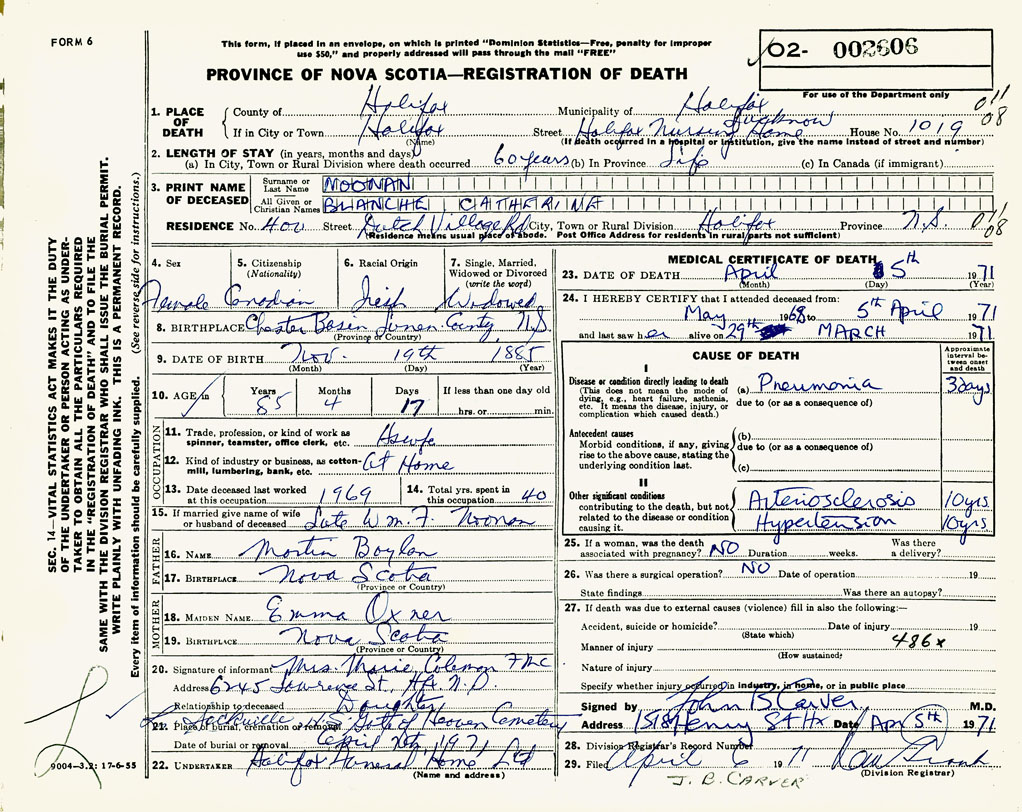 FORM 6
This form, if placed in an envelope, on which is printed "Dominion Statistics—Free, penalty for improper
use $50," and properly addressed will pass through the mail "FREE"
02- 002606
For use of the Department only
PROVINCE OF NOVA SCOTIA—REGISTRATION OF DEATH
SEC. 14—VITAL STATISTICS ACT MAKES IT THE DUTY
OF THE UNDERTAKER OR PERSON ACTING AS UNDER-
TAKER TO OBTAIN ALL THE PARTICULARS REQUIRED
IN THE "REGISTRATION OF DEATH" AND TO FILE THE
SAME WITH THE DIVISION REGISTRAR WHO SHALL ISSUE THE BURIAL PERMIT.
WRITE PLAINLY WITH UNFADING INK. THIS IS A PERMANENT RECORD.
Every item of information should be carefully supplied. (See reverse side for instructions.)
1. PLACE OF DEATH
County of Halifax Municipality of Halifax 011
If in City or Town Halifax Street Halifax Nursing Home Lucknow House No. 1019 08
(Name) (If death occurred in a hospital or institution, give the name instead of street and number)
2. LENGTH OF STAY (in years, months and days)
(a) In City, Town or Rural Division where death occurred 60 years (b) In Province Life (c) In Canada (if immigrant)
3. PRINT NAME OF DECEASED
Surname or Last Name NOONAN
All Given or Christian Names BLANCHE CATHERINE
RESIDENCE No. 400 Street Dutch Village Rd City, Town or Rural Division Halifax Province N.S. 011 08
(Residence means usual place of abode. Post Office Address for residents in rural parts not sufficient)
4. Sex 5. Citizenship (Nationality) 6. Racial Origin 7. Single, Married, Widowed or Divorced (write the word)
Female Canadian Irish Widowed
8. BIRTHPLACE Chester Basin Lunen. County, N.S.
(Province or Country)
9. DATE OF BIRTH Nov. 19th 1885
(Month) (Day) (Year)
10. AGE in Years Months Days If less than one day old
85 4 17 hrs. or min.
OCCUPATION
11. Trade, profession, or kind of work as spinner, teamster, office clerk, etc. Hswfe
12. Kind of industry or business, as cotton-mill, lumbering, bank, etc. At Home
13. Date deceased last worked at this occupation 1969 14. Total yrs. spent in this occupation 40
15. If married give name of wife or husband of deceased Late Wm. F. Noonan
FATHER
16. NAME Martin Boylan
17. BIRTHPLACE Nova Scotia
(Province or Country)
MOTHER
18. MAIDEN NAME Emma Oxner
19. BIRTHPLACE Nova Scotia
(Province or Country)
20. Signature of informant Mrs. Marie Coleman
Address 6245 Lawrence St., Hfx
Relationship to deceased Daughter
21. Place of burial, cremation or removal L. Sackville N.S. Gate of Heaven Cemetery
Date of burial or removal April 1971
22. UNDERTAKER Halifax Funeral Home Ltd
(Name and address)
9004—3.2: 17-6-55
MEDICAL CERTIFICATE OF DEATH
23. DATE OF DEATH April 5th 1971
(Month) (Day) (Year)
24. I HEREBY CERTIFY that I attended deceased from:
May 1968 to 5th April 1971
and last saw her alive on 29th MARCH 1971
CAUSE OF DEATH
Approximate interval between onset and death
I
Disease or condition directly leading to death (a) Pneumonia 3 days
(This does not mean the mode of dying, e.g., heart failure, asthenia, etc. It means the disease, injury, or complication which caused death.)
due to (or as a consequence of)
Antecedent causes (b)
Morbid conditions, if any, giving rise to the above cause, stating the underlying condition last.
due to (or as a consequence of)
(c)
II
Other significant conditions contributing to the death, but not related to the disease or condition causing it.
Arteriosclerosis 10 yrs
Hypertension 10 yrs
25. If a woman, was the death associated with pregnancy? NO Duration weeks. Was there a delivery?
26. Was there a surgical operation? NO Date of operation 19
State findings Was there an autopsy?
27. If death was due to external causes (violence) fill in also the following:—
Accident, suicide or homicide? Date of injury 19
(State which)
Manner of injury 486x
(How sustained)
Nature of injury
Specify whether injury occurred in industry, in home, or in public place
Signed by John B. Carver M.D.
Address 1518 Henry St Hx Date Apr 5th 1971
28. Division Registrar's Record Number
29. Filed April 6 1971
(Division Registrar)
J. B. CARVER